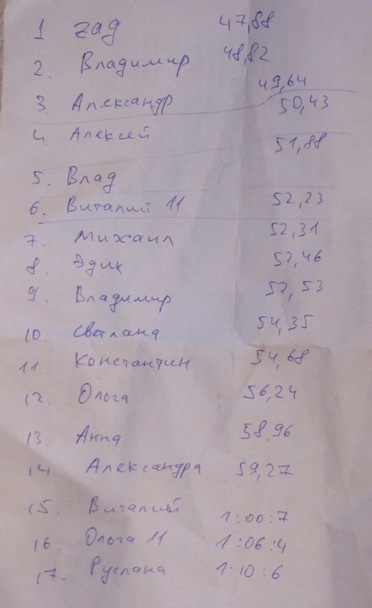 1 гад 47,88
2. Владимир 48,82
3. Александр 49,64
4. Алексей 50,43
5. Влад 51,88
6. Виталий 11 52,23
7. Михаил 52,31
8. Эдик 52,46
9. Владимир 52,53
10. Светлана 54,35
11. Константин 54,68
12. Ольга 56,24
13 Анна 58,96
14. Александра 59,27
15. Виталий 1:00:7
16 Ольга 11 1:06:4
17. Руслана 1:10:6